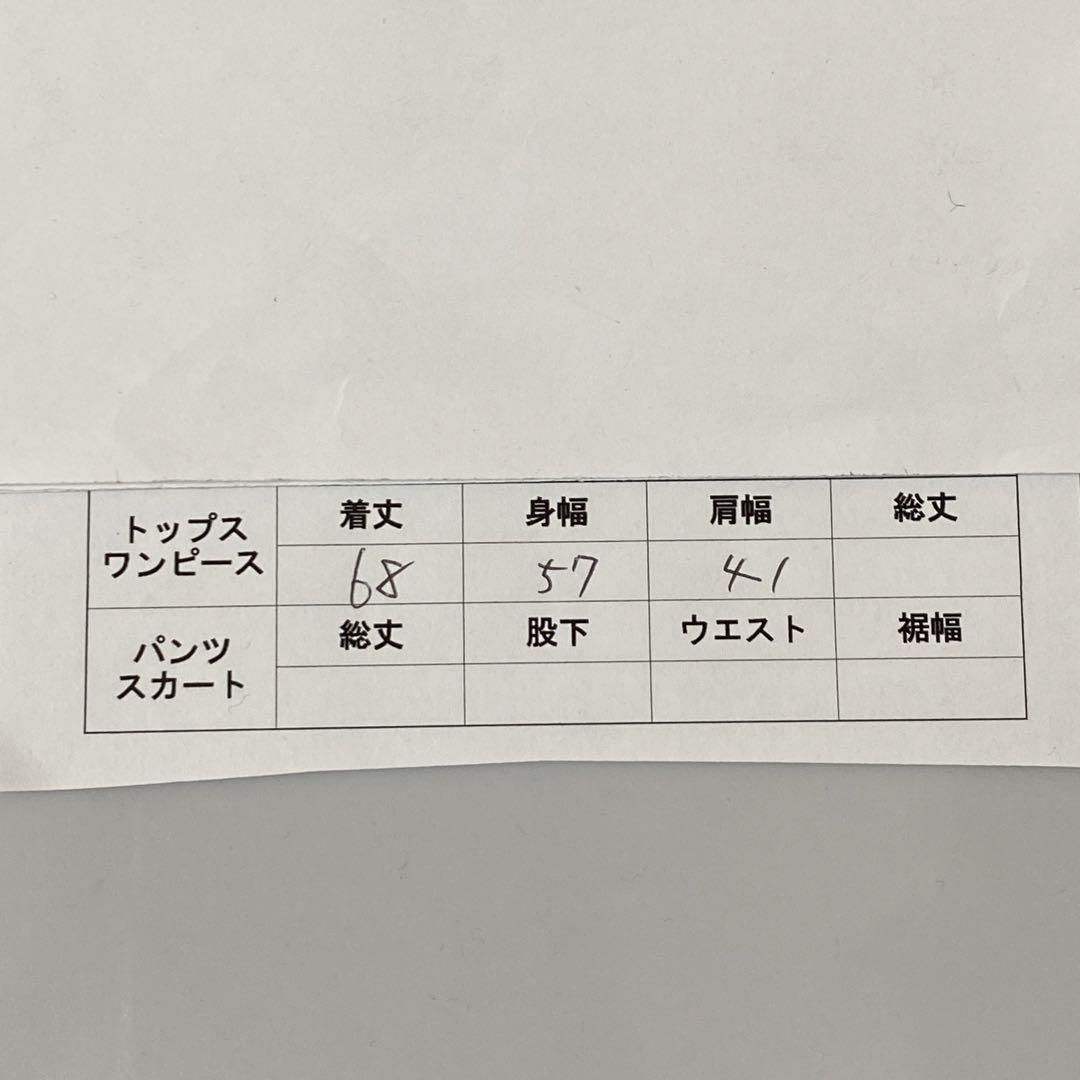 トップス
ワンピース
着丈 身幅 肩幅 総丈
68 57 41
パンツ
スカート
総丈 股下 ウエスト 裾幅